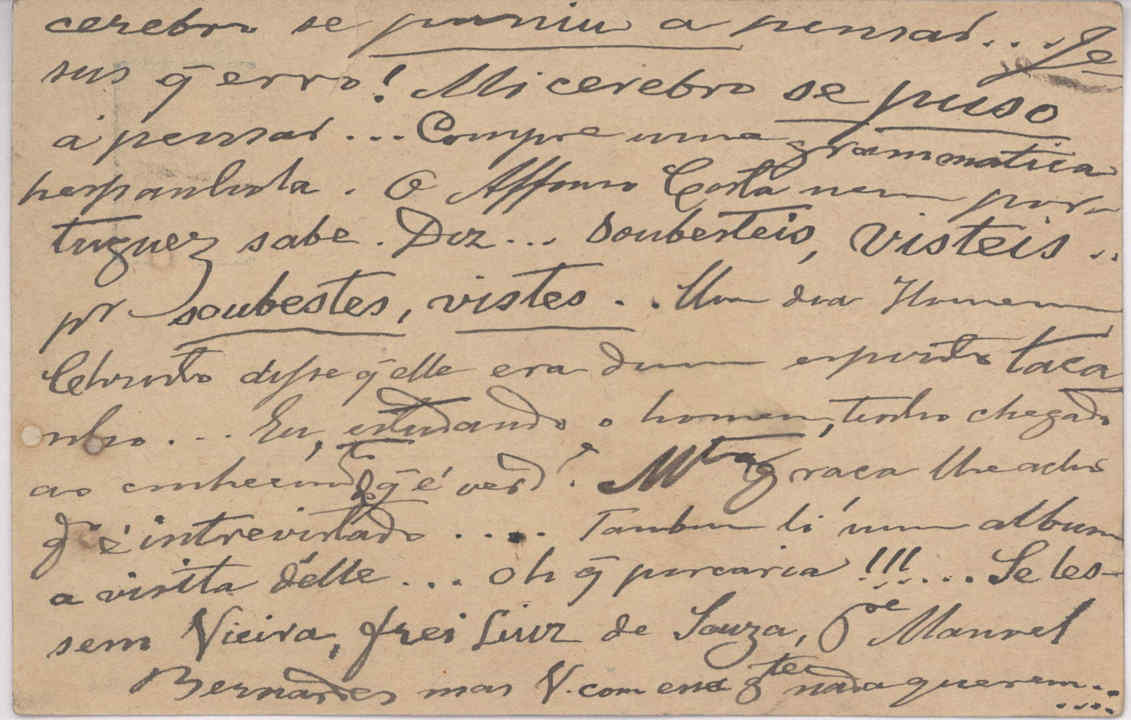 cerebro se puniu a pensar... Je-
sus q̃ erro! Mi cerebro se puso
á pensar... Compre uma grammatica
hespanhola. O Affonso Costa nem por-
tuguez sabe. Diz... Soubesteis, visteis..
pr soubestes, vistes.. Um dia Homem
Christo disse q̃ elle era dum espirito taca
nho... Eu, estudando o homem, tenho chegado
ao conhecimto de q̃ é verde. Mta graça lhe acho
qdo é intrevistado..... Tambem li num album
a visita d'elle... Oh q̃ porcaria!!!.... Se les-
sem Vieira, frei Luiz de Souza, Pe Manuel
Bernardes mas V. com essa gte nada querem....